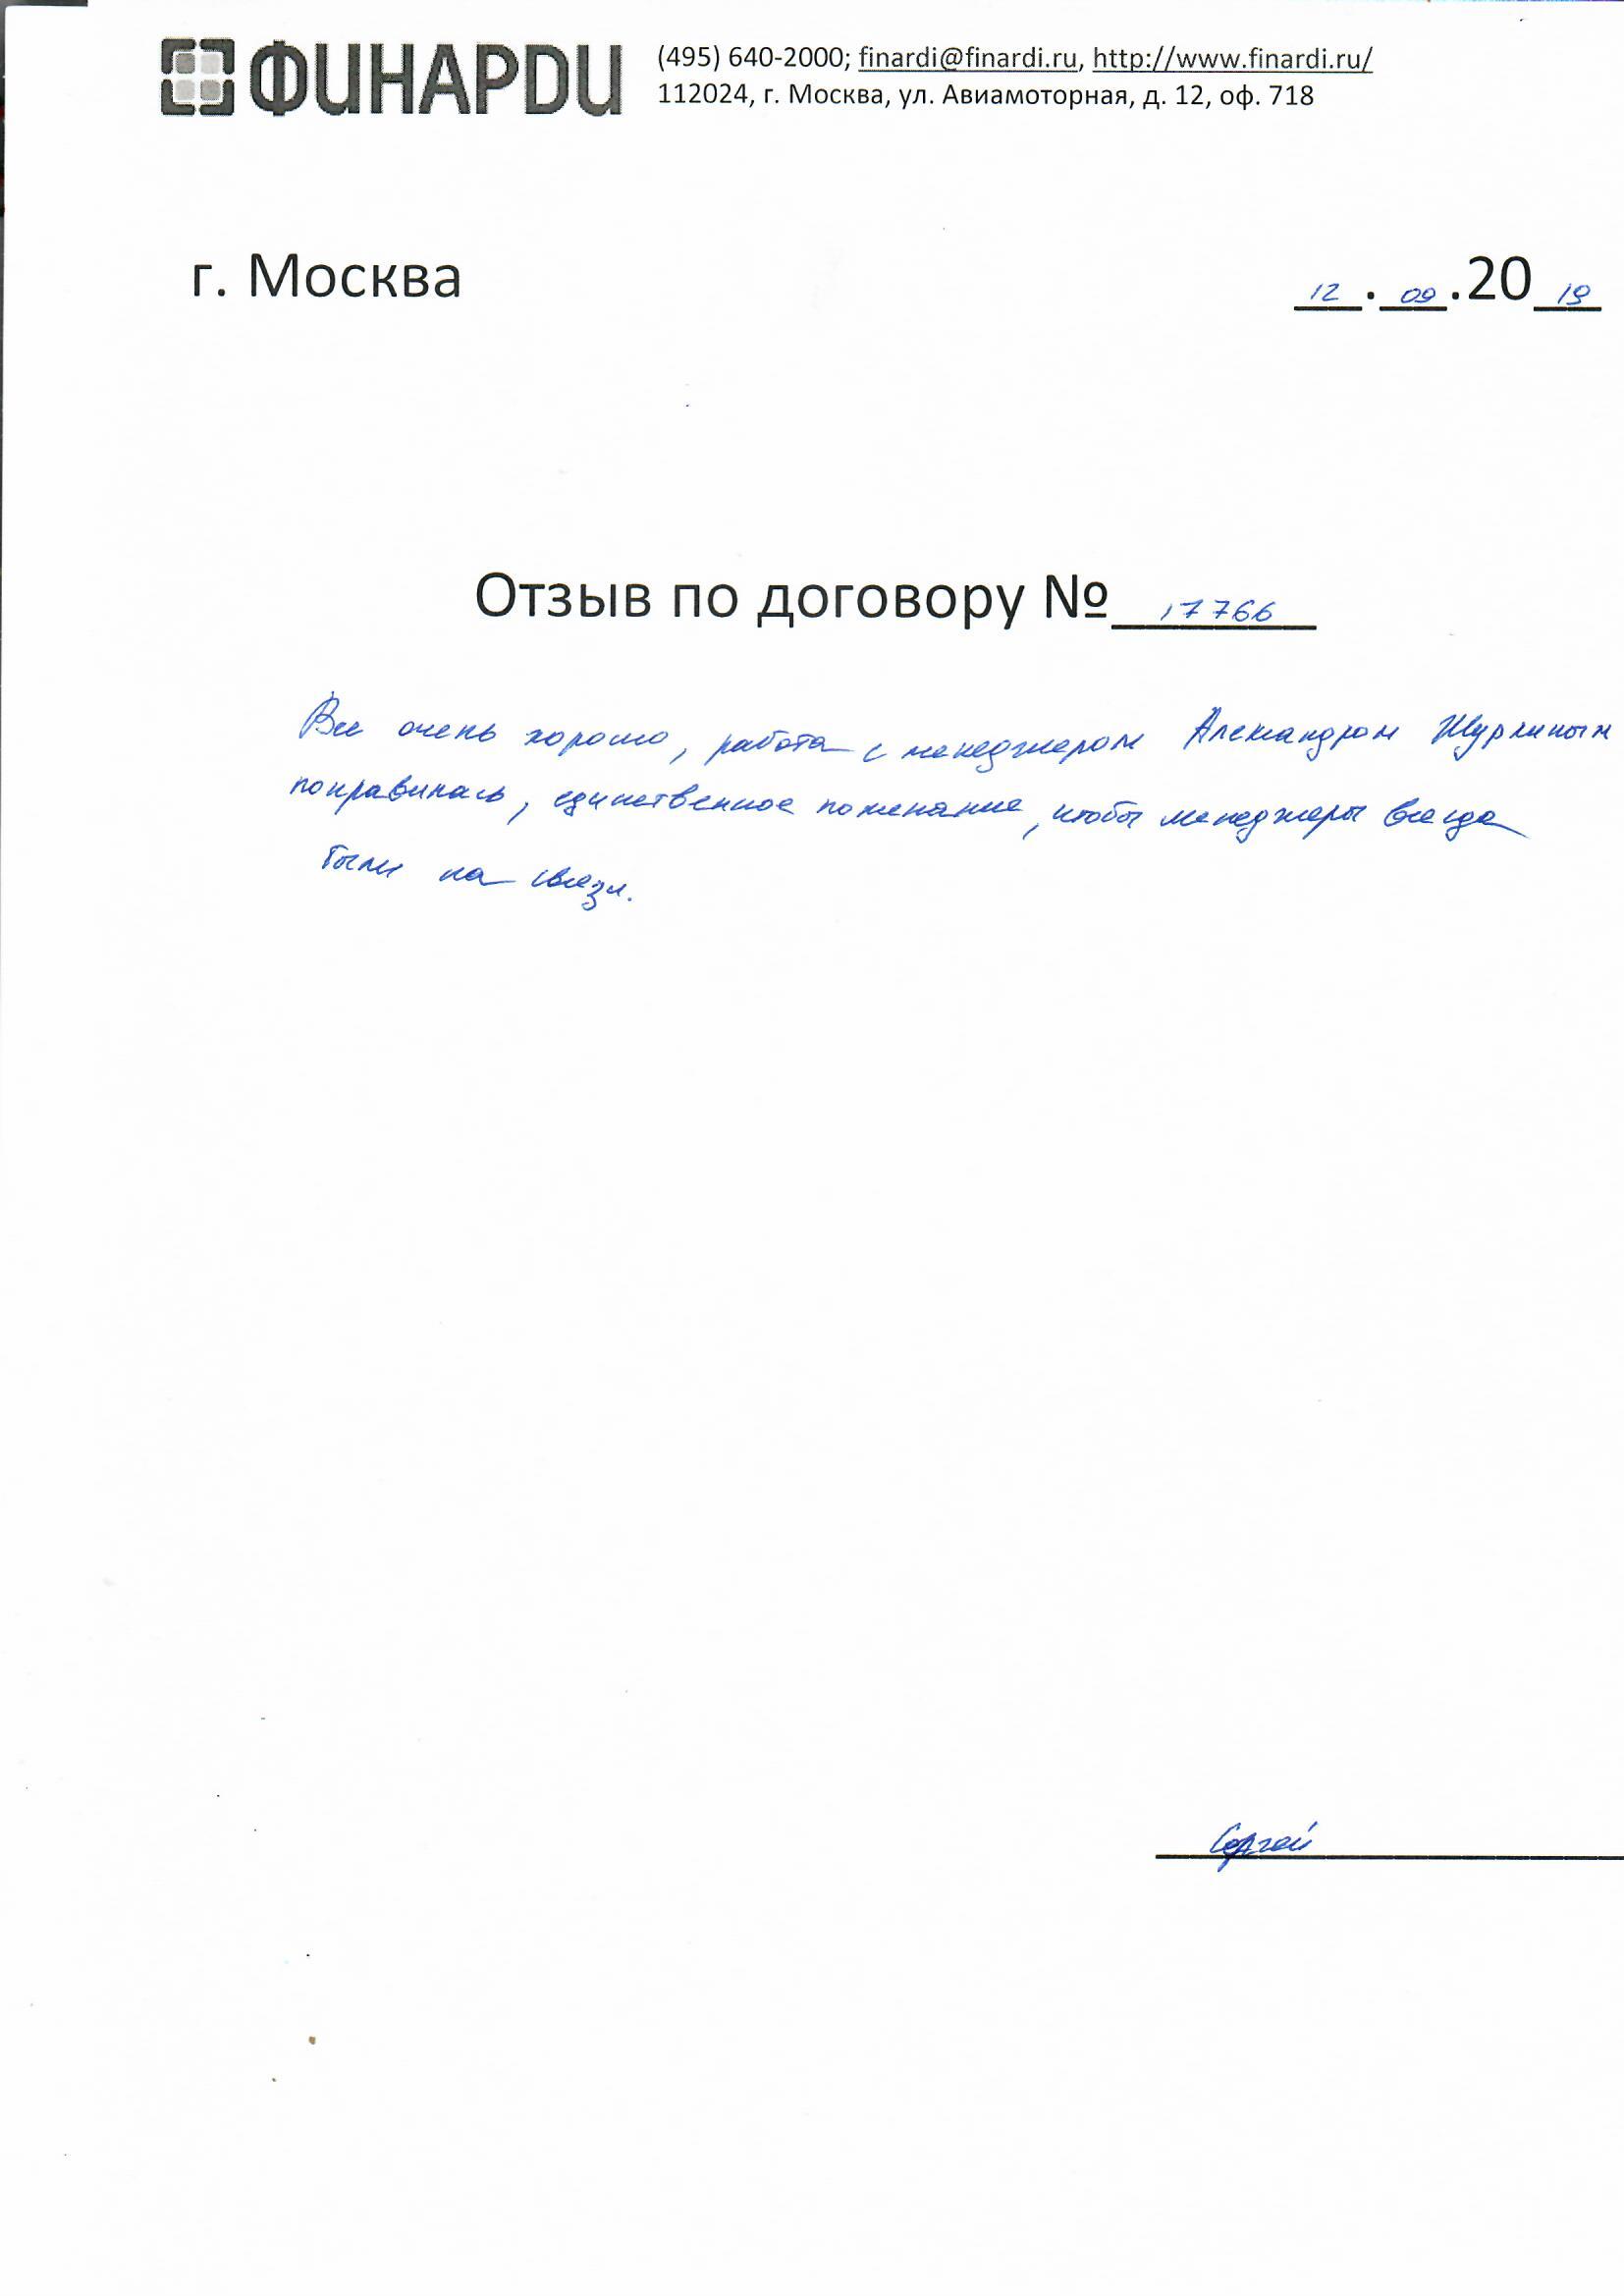 ФИНАРДИ
(495) 640-2000; finardi@finardi.ru, http://www.finardi.ru/
112024, г. Москва, ул. Авиамоторная, д. 12, оф. 718
г. Москва 12.09.2019
Отзыв по договору № 17766
Все очень хорошо, работа с менеджером Александром
понравилась, единственное пожелание, чтобы менеджеры всегда
были на связи.
Сергей